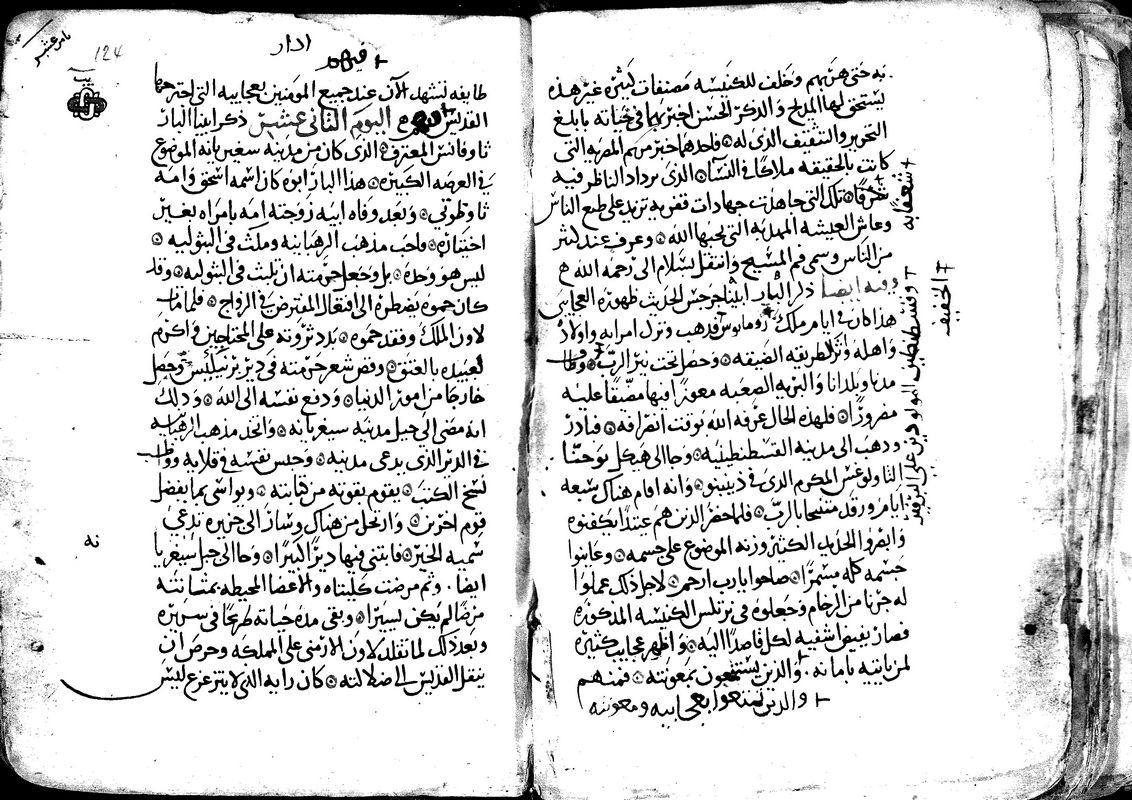 به حتى هزمهم وخلف للكنيسه مصنفات كثيره غير هذه
يستحق لها المديح والذكر الحسن اختبر بهما في حياته بابلغ
التحرير والتثقيف الذي له ۞ فاحدهما خبر مريم المصريه التي
كانت بالحقيقه ملاكًا في النساء الذي يزداد الناظر فيه
تلك التي جاهدت جهادات تزيد على طبع الناس
وعاش العيشه التي يحبها الله ۞ وعرف عند كثير
من الناس وسمي فم المسيح وانتقل بسلام الى رحمه الله
وفيه ايضا ذكر البار ابينا جرجس الحديث ظهوره العجايبي
هذا كان في ايام ملك رومانوس فذهب وترك امراته واولاده
واهله واثر الطريقه الضيقه ۞ وحصل تحت نير الرب ۞
مدنا وبلدانا والبريه الصعبه معوزًا فيها مضيقًا عليه
مضرورًا ۞ فلهذه الحال عرفه الله بوقت انصرافه ۞ فبادر
وذهب الى مدينه القسطنطينيه ۞ وجا الى هيكل يوحنا
الثاولوغس المكرم الذي في ۞ وانه اقام هناك سبعه
ايام ورقد متنيحا بالرب ۞ فلما حضر الذين هم عتيدًا يكفنوه
وابصروا الحديد الكثير وزنه الموضوع على جسمه ۞ وعاينوا
جسمه كله مسمرًا ۞ صاحوا يا رب ارحم ۞ لاجل ذلك عملوا
له جرنا من الرخام وجعلوه في الكنيسه المذكوره
فصار يفيض اشفيه لكل قاصدًا اليه ۞ واظهر عجايب كثيره
لمن ياتيه بامانه ۞ والذين يستمتعون بمعونته ۞ فمنهم
والذين تمتعوا بعجايبه ومعونته
شغفا به
وقسطنطين المولودين على البرفير
الخفيف
ثامن عشر
124
ادار
فيهم
يب
طايفه تشهد الآن عند جميع المومنين بعجايبه التي اجترحها
القديس اليوم الثاني عشر ذكر ابينا البار
ثاوفانس المعترف ۞ الذي كان من مدينه سغريانه الموضوع
في العرصه الكبيره ۞ هذا البار ابوه كان اسمه اسحق وامه
ثاوظوتي ۞ وبعد وفاه ابيه زوجته امه بامراه بغير
اختياره ۞ فاحب مذهب الرهبانيه ومكث في البتوليه ۞
ليس هو وحده ۞ بل وجعل حرمته ان تلبث في البتوليه ۞ وقد
كان حموه يضطره الى افتعال المفترض في الزواج ۞ فلما مات
لاون الملك وفقد حموه ۞ بدد ثروته على المحتاجين واكرم
لعبيده بالعتق ۞ وقص شعر حرمته في دير وحصل
خارجا من امور الدنيا ۞ ودفع نفسه الى الله ۞ وذلك
انه مضى الى جبل مدينه سيغريانه ۞ واتخذ مذهب الرهبانيه
في الدير الذي يدعى مدينه ۞ وحبس نفسه في قلايه
لنسخ الكتب ۞ يقوم بقوته من كتابته ۞ ويواسي بما يفضل
قوم اخرين ۞ وارتحل من هناك وسار الى جزيره تدعى
شميه الجزيره فابتنى فيها ديرًا كبيرًا ۞ وجا الى جبل سيغريا
ايضا ۞ وثم مرضت كليتاه والاعضا المحيطه بمثانته
مرضا لم يكن يسيرًا ۞ وبقى مده حياته طريحًا في سريره
وبعد ذلك لما تقلد لاون الارمني على المملكه وحرص ان
ينقل القديس الى ضلالته ۞ كان رايه الذي لا يتزعزع ليس
نه